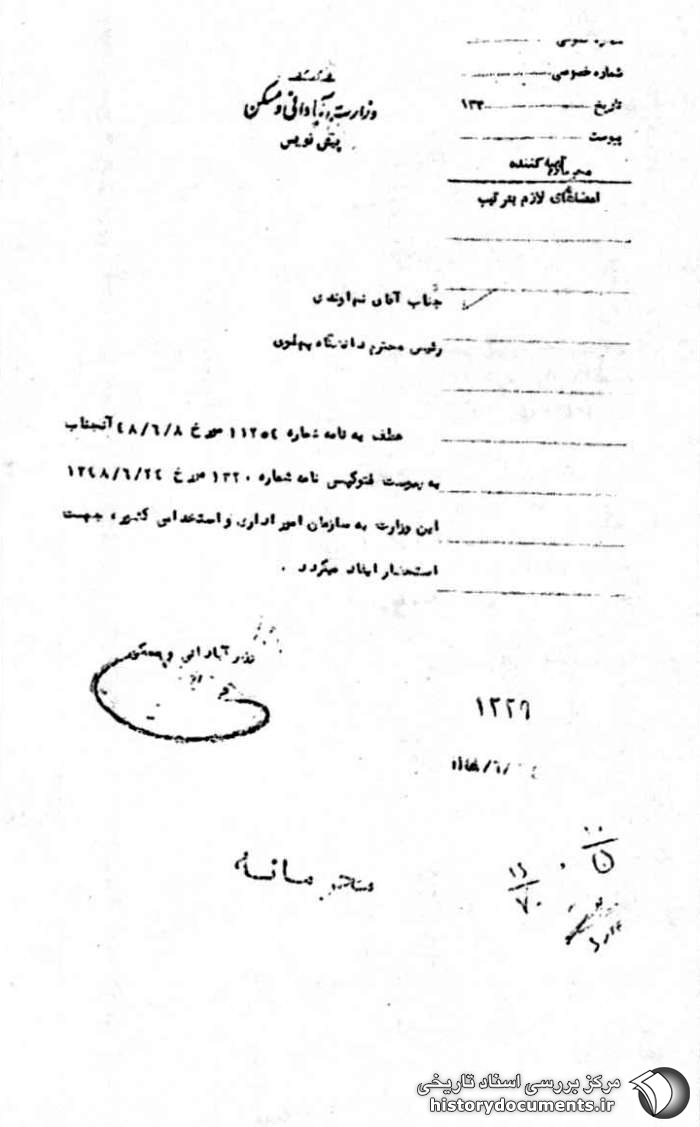 شماره عمومی
شماره خصوصی
تاریخ ۱۳۳
پیوست
کننده
امضاهای لازم بترتیب
وزارت آبادانی و مسکن
پیش نویس
جناب آقای نهاوندی
رئیس محترم دانشگاه پهلوی
عطف به نامه شماره ۱۱۲۵۴ مورخ ۴۸/۶/۸ آنجناب
به پیوست فتوکپی نامه شماره ۱۳۲۰ مورخ ۱۳۴۸/۶/۲۴
این وزارت به سازمان امور اداری و استخدامی کشور، جهت
استحضار ایفاد میگردد .
وزیر آبادانی و مسکن
۱۳۲۹
محرمانه
۱۶/۷۰
مرکز بررسی اسناد تاریخی
historydocuments.ir